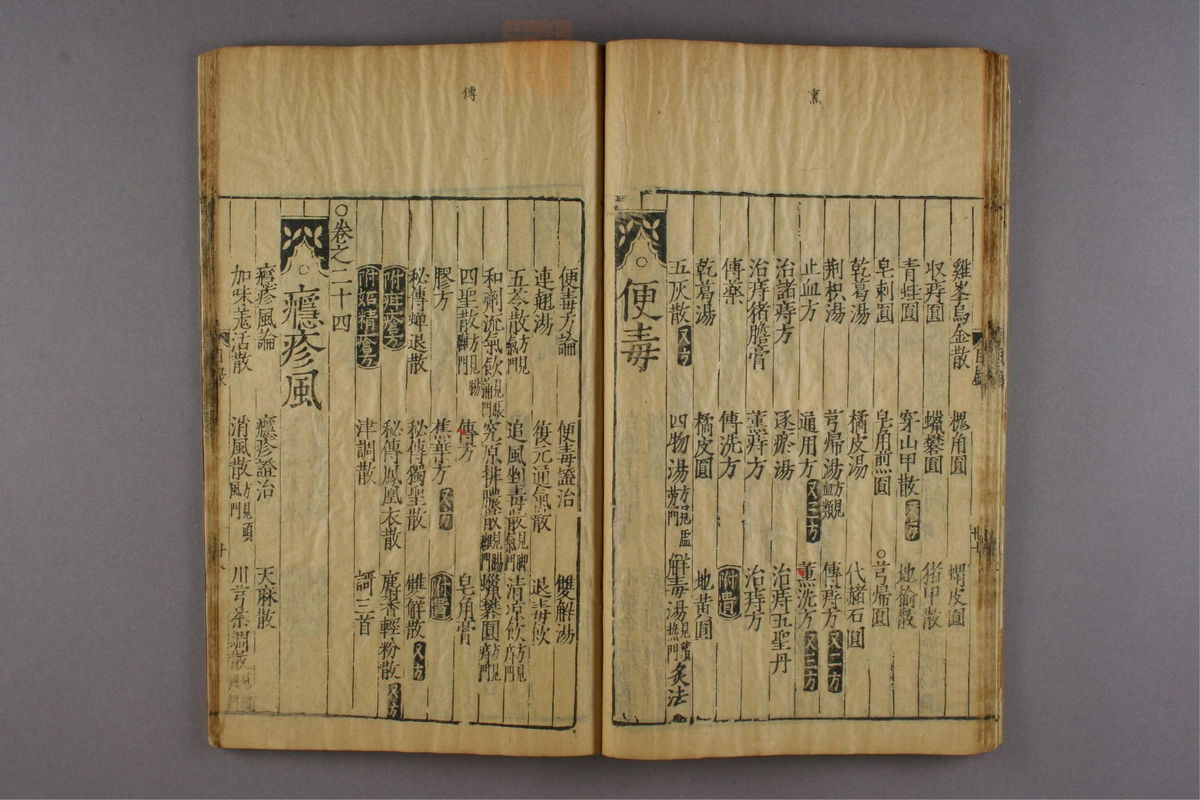 熏
雞峯烏金散 槐角圓 蝟皮圓
収痔圓 蠟礬圓 猪甲散
青蛙圓 穿山甲散 又方 地榆散
皂刺圓 皂角煎圓 ○芎歸圓
乾葛湯 橘皮湯 代赭石圓
荆枳湯 芎歸湯方見血類 傅痔方 又二方
止血方 通用方 又三方 熏洗方 又三方
治諸痔方 逐瘀湯 治痔五聖丹
治痔猪膽膏 熏痔方 治痔方
傅藥 傅洗方 附遺
乾葛湯 橘皮圓 地黃圓
五灰散 又方 四物湯 解毒湯 灸法
○便毒
傅
便毒方論 便毒證治 雙解湯
連翹湯 復元通氣散 退毒飲
五苓散 追風剉毒散 清凉飲方見
和劑流氣飲 究原排膿散 蠟礬圓方見
四聖散方見腸 傅方 皂角膏
膠方 蕉葉方 又方 附遺
秘傳蟬退散 秘傳獨聖散 雙解散 又方
附疳瘡方 秘傳鳳凰衣散 麝香輕粉散 又方
附妬精瘡方 津調散 訶三首
○卷之二十四
○癮疹風
癮疹風論 癮疹證治 天麻散
加味羗活散 消風散方見頭風門 川芎茶調散